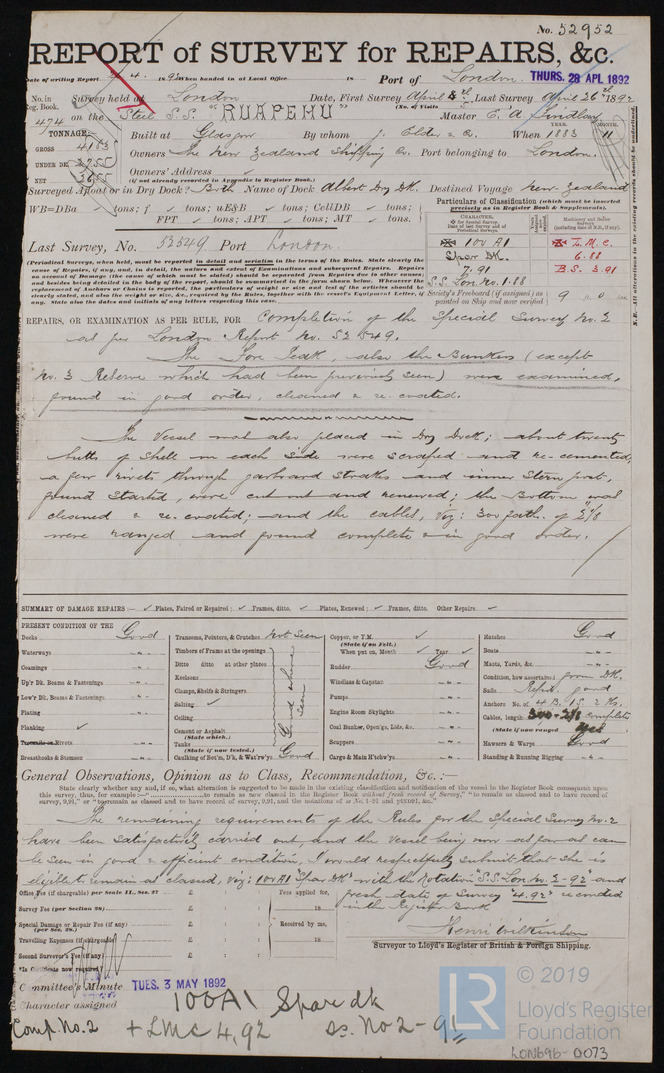 No. 52952
REPORT of SURVEY for REPAIRS, &c.
Date of writing Report 18 92 When handed in at Local Office 18 Port of London. THURS. 28 APL 1892
No. in Reg. Book. Survey held at London Date, First Survey April Last Survey April 26th 1892
(No. of Visits
474 on the Steel S.S. "RUAPEHU" Master
TONNAGE:— Built at Glasgow By whom J. Elder & Co. When 1883 MONTH. 11
YEAR.
GROSS 4163
UNDER DK.
NET
Owners The New Zealand Shipping Co. Port belonging to London.
Owners' Address
(if not already recorded in Appendix to Register Book.)
Surveyed Afloat or in Dry Dock? Both Name of Dock Albert Dry Dk. Destined Voyage New Zealand
WB=DBa tons; f tons; uE&B tons; CellDB tons;
FPT tons; APT tons; MT tons.
Particulars of Classification (which must be inserted precisely as in Register Book & Supplements).
CHARACTER.
100 A1
Spar Dk.
7.91
S.S. Lon. No. 1.88
L.M.C.
6.88
B.S. 3.91
Society's Freeboard (if assigned) as painted on Ship and now verified
Last Survey, No. 52549 Port London.
(Periodical Surveys, when held, must be reported in detail and seriatim in the terms of the Rules. State clearly the cause of Repairs, if any, and, in detail, the nature and extent of Examinations and subsequent Repairs. Repairs on account of Damage (the cause of which must be stated) should be separated from Repairs due to other causes; and besides being detailed in the body of the report, should be summarised in the form shown below. Whenever the replacement of Anchors or Chains is reported, the particulars of weight or size and test of the articles should be clearly stated, and also the weight or size, &c., required by the Rules, together with the vessel's Equipment Letter, if any. State also the dates and initials of any letters respecting this case.)
N.B. All alterations in the existing records should be underlined.
REPAIRS, OR EXAMINATION AS PER RULE, FOR Completion of the Special Survey No. 2
as per London Report No. 52549.
The Fore Peak, also the Bunkers (except
No. 3 Reserve which had been previously seen) were examined,
found in good order, cleaned & re-coated.
The Vessel was also placed in Dry Dock; about twenty
butts of Shell on each side were scraped and re-cemented,
a few rivets through garboard strakes and inner Stern post,
found started, were cut out and renewed; the Bottom was
cleaned & re-coated; and the cables, viz: 300 fath. of 2 1/8
were ranged and found complete & in good order.
SUMMARY OF DAMAGE REPAIRS:— Plates, Faired or Repaired; Frames, ditto. Plates, Renewed; Frames, ditto. Other Repairs.
PRESENT CONDITION OF THE
Decks Good
Waterways
Coamings
Up'r Dk. Beams & Fastenings
Low'r Dk. Beams & Fastenings
Plating
Planking
Treenails or Rivets
Breasthooks & Stemson
Transoms, Pointers, & Crutches not seen
Timbers of Frame at the openings
Ditto ditto at other places
Keelsons
Clamps, Shelfs & Stringers
Salting
Ceiling
Cement or Asphalt
(State which.)
Tanks
(State if now tested.)
Good where seen
Caulking of Bot'm, D'k, & Wat'rw'ys Good
Copper, or Y.M.
(State if on Felt.)
When put on, Month Year
Rudder Good
Windlass & Capstan
Pumps
Engine Room Skylights
Coal Bunker, Open'gs, Lids, &c.
Scuppers
Cargo & Main H'tchw'ys
Hatches Good
Boats
Masts, Yards, &c.
Condition, how ascertained from Dk.
Sails good
Anchors No. of 4 B. 1 S. 2 Ks.
Cables, length 300 - 2 1/8 complete
(State if now ranged yes
Hawsers & Warps Good
Standing & Running Rigging
General Observations, Opinion as to Class, Recommendation, &c.:—
State clearly whether any, and if so, what alteration is suggested to be made in the existing classification and notification of the vessel in the Register Book consequent upon this survey, thus, for example:—" to remain as now classed in the Register Book without fresh record of Survey," "to remain as classed and to have record of survey, 9,91," or "to remain as classed and to have record of survey, 9,91, and the notations of ss No. 1-91 and ptNE91, &c."
The remaining requirements of the Rules for the Special Survey No. 2
have been satisfactorily carried out, and the Vessel being now as far as can
be seen in good & efficient condition, I would respectfully submit that she is
eligible to remain as classed, viz: 100 A1 "Spar Dk" with the Notation "S.S. Lon. No. 2-92" and
fresh date of Survey "4.92" recorded
in the Register Book
Office Fee (if chargeable) per Scale II., Sec. 27 £ : : Fees applied for,
Survey Fee (per Section 28) £ : : 18
Special Damage or Repair Fee (if any) £ : : Received by me,
(per Sec. 28.)
Travelling Expenses (if chargeable) £ : : 18
Second Surveyor's Fee (if any) £ : :
*Is Certificate now required?
Henri Wilkinson
Surveyor to Lloyd's Register of British & Foreign Shipping.
Committee's Minute TUES. 3 MAY 1892
Character assigned 100A1 Spar dk
Comp. No. 2 + LMC 4,92 ss. No 2 - 91
LR
© 2019
Lloyd's Register
Foundation
LON696-0073